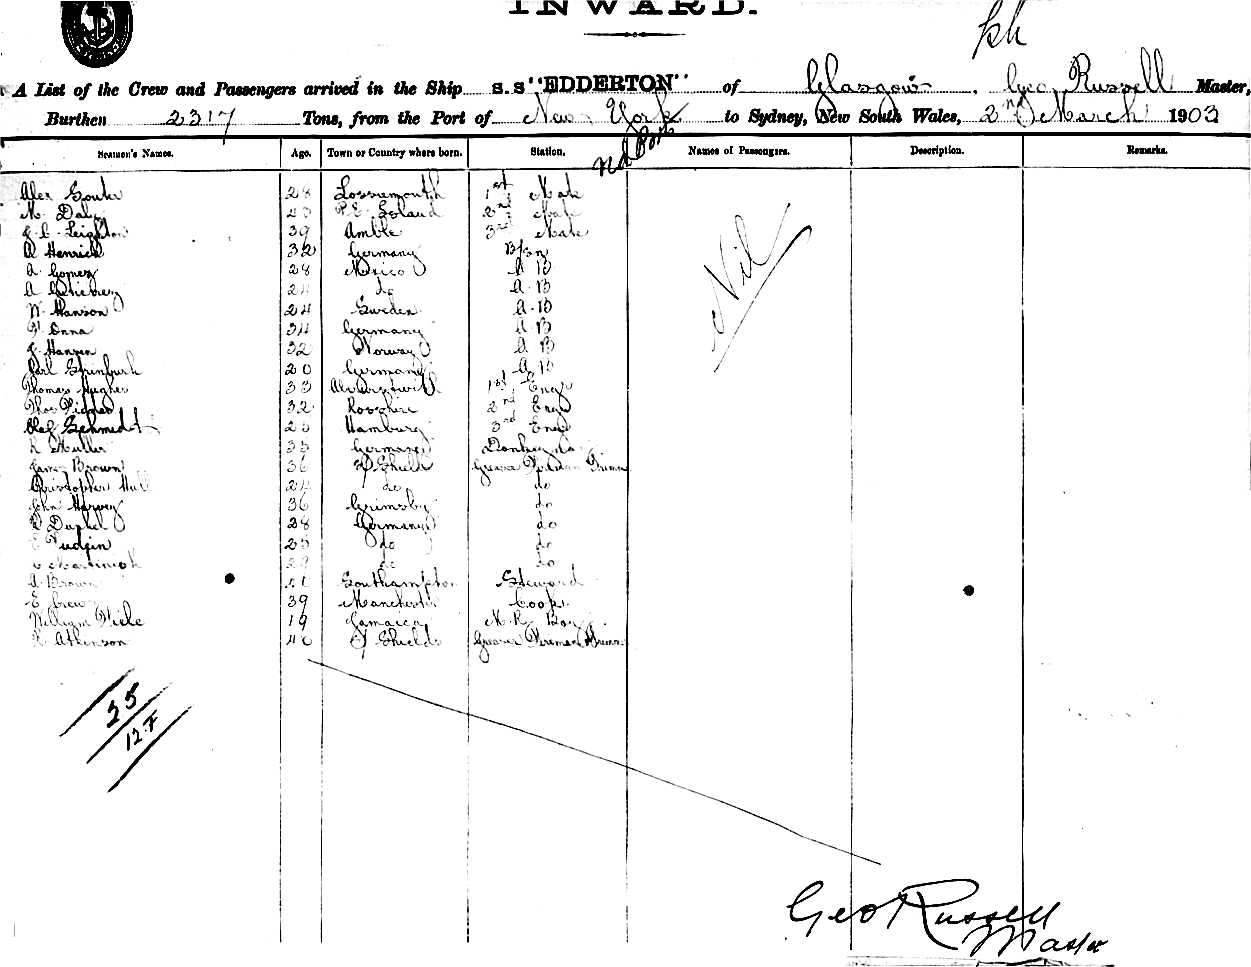 INWARD.
ph
A List of the Crew and Passengers arrived in the Ship S.S "EDDERTON" of Glasgow, Geo Russell Master,
Burthen 2317 Tons, from the Port of New York to Sydney, New South Wales, 2nd March 1903
Seamen's Names. Age. Town or Country where born. Station. Names of Passengers. Description. Remarks.
Alex Souter 28 Lossiemouth 1st Mate
M. Daly P.E. Island 2nd Mate
Leighton 39 Amble 3rd Mate
Nil
A Henrick 32 Germany B/sn
A. Gomez 28 Mexico A B
A Gutierrez 24 do A.B
W Hanson 24 Sweden A.B
Onna 34 Germany A B
Hansen 32 Norway A B
Carl 20 Germany A B
Thomas Hughes 33 1st Eng
Thos 32 2nd Eng
Olaf Schmedt 25 Hamburg 3rd Eng
Muller 35 Germany Donkey
James Brown 36 Shields Greaser Fireman Trimr
Christopher 24 do do
John Harvey 36 Grimsby do
28 Germany do
25 do do
do do
A. Brown Southampton Steward
E Crew 39 Manchester Cook
William 19 Jamaica M.R. Boy
Atkinson Shields Greaser Fireman
25
12.F
Geo Russell
Master